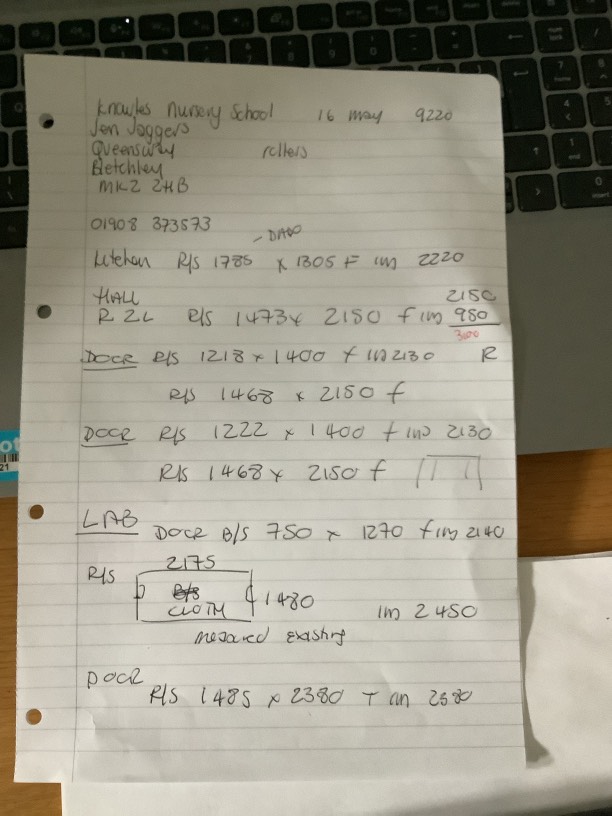 Knowles Nursery School 16 May 9220
Jen Joggers
Queensway rollers
Bletchley
MK2 2HB
01908 373573
- DADO
Kitchen R/S 1785 x 1305 F im 2220
HALL 2150
R 2 L R/S 1473 x 2150 f im 980
3100
DOOR R/S 1218 x 1400 f im 2130 R
R/S 1468 x 2150 f
DOOR R/S 1222 x 1400 f im 2130
R/S 1468 x 2150 f
LAB DOOR B/S 750 x 1270 f im 2140
2175
R/S
CLOTH 1480 im 2450
mesared existing
DOOR
R/S 1485 x 2380 T im